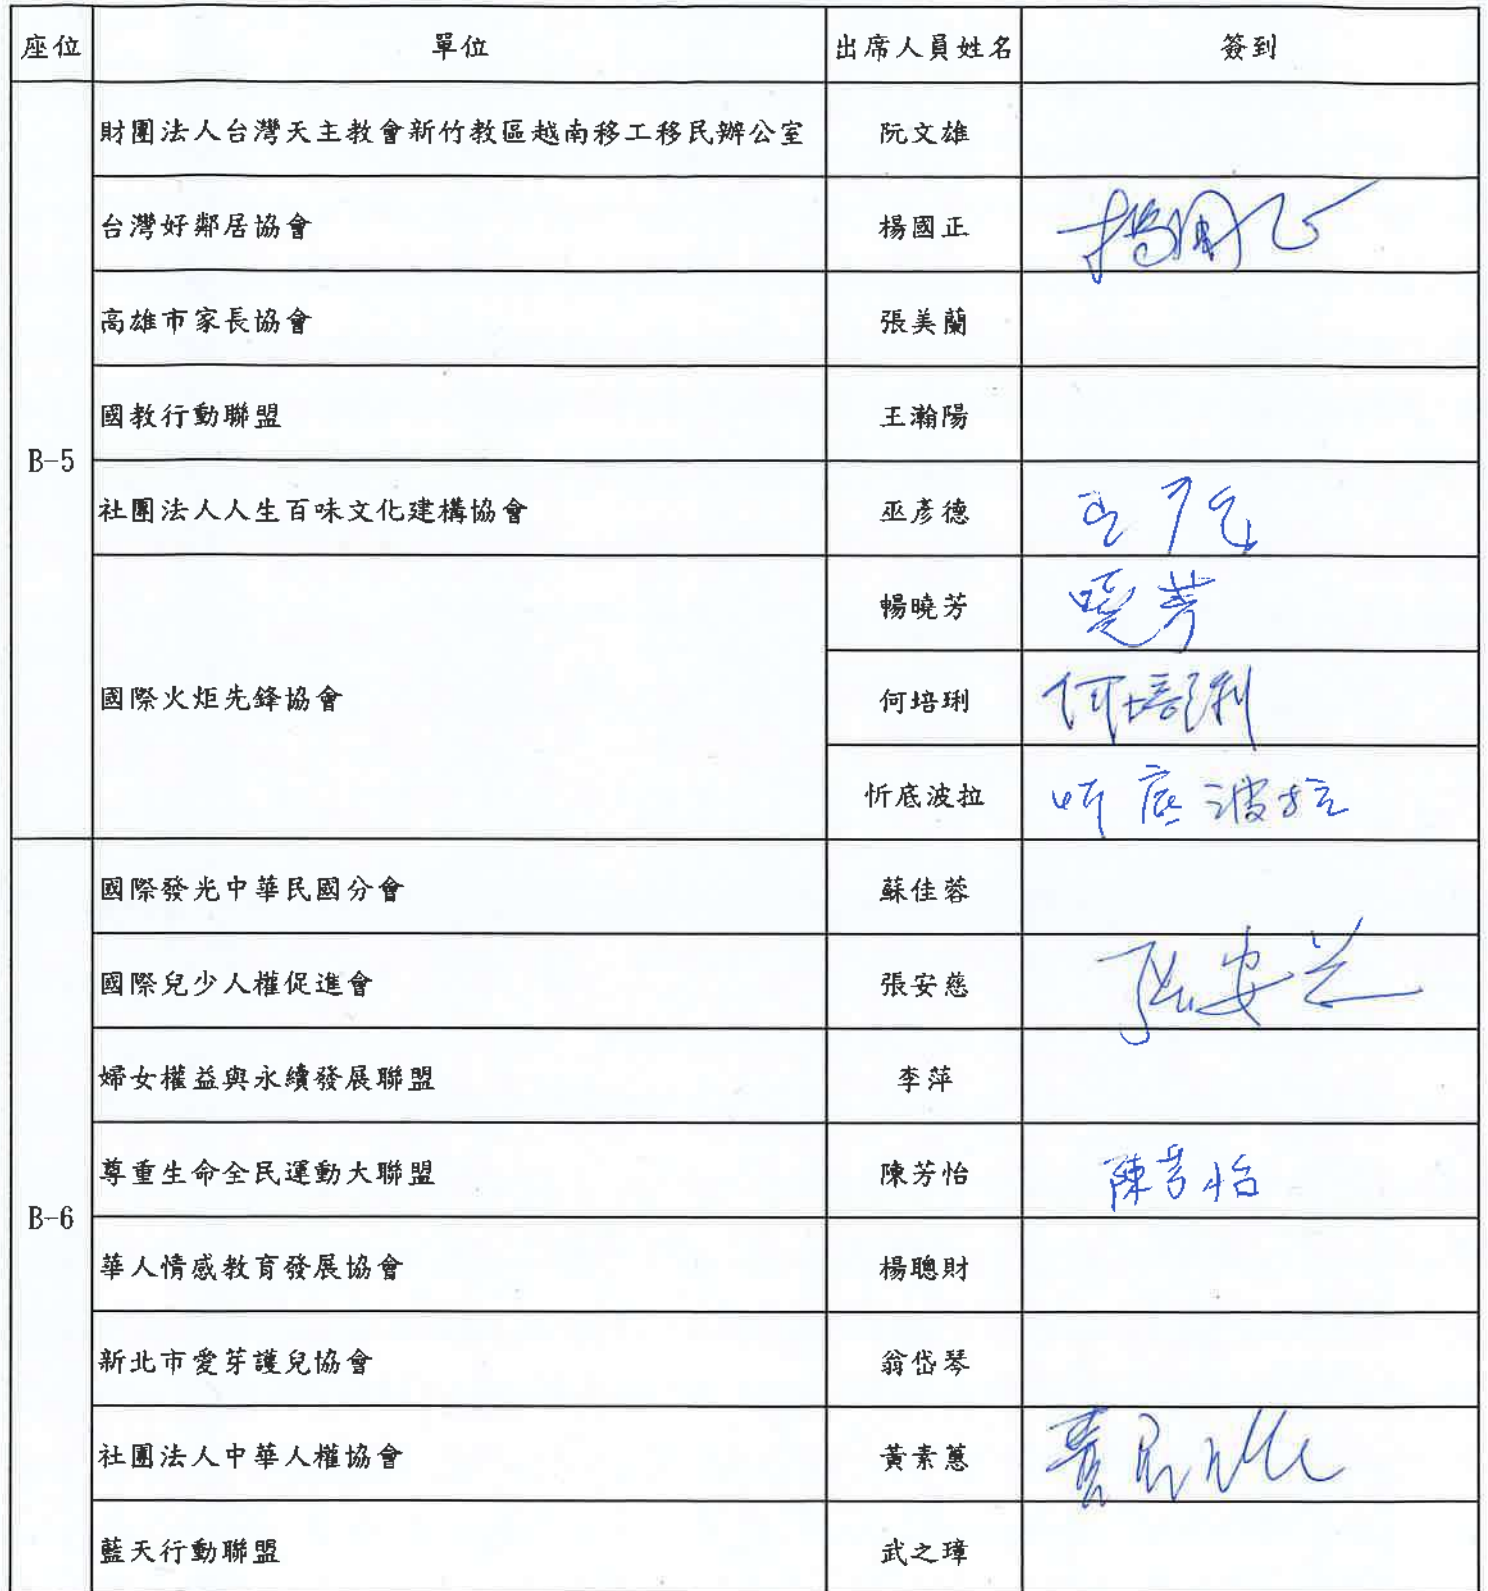 座位 單位 出席人員姓名 簽到
財團法人台灣天主教會新竹教區越南移工移民辦公室 阮文雄
台灣好鄰居協會 楊國正 楊國正
高雄市家長協會 張美蘭
國教行動聯盟 王瀚陽
B-5
社團法人人生百味文化建構協會 巫彥德
暢曉芳 曉芳
國際火炬先鋒協會 何培琍 何培琍
忻底波拉 忻底波拉
國際發光中華民國分會 蘇佳蓉
國際兒少人權促進會 張安慈 張安慈
婦女權益與永續發展聯盟 李萍
尊重生命全民運動大聯盟 陳芳怡 陳芳怡
B-6
華人情感教育發展協會 楊聰財
新北市愛芽護兒協會 翁岱琴
社團法人中華人權協會 黃素蕙
藍天行動聯盟 武之璋